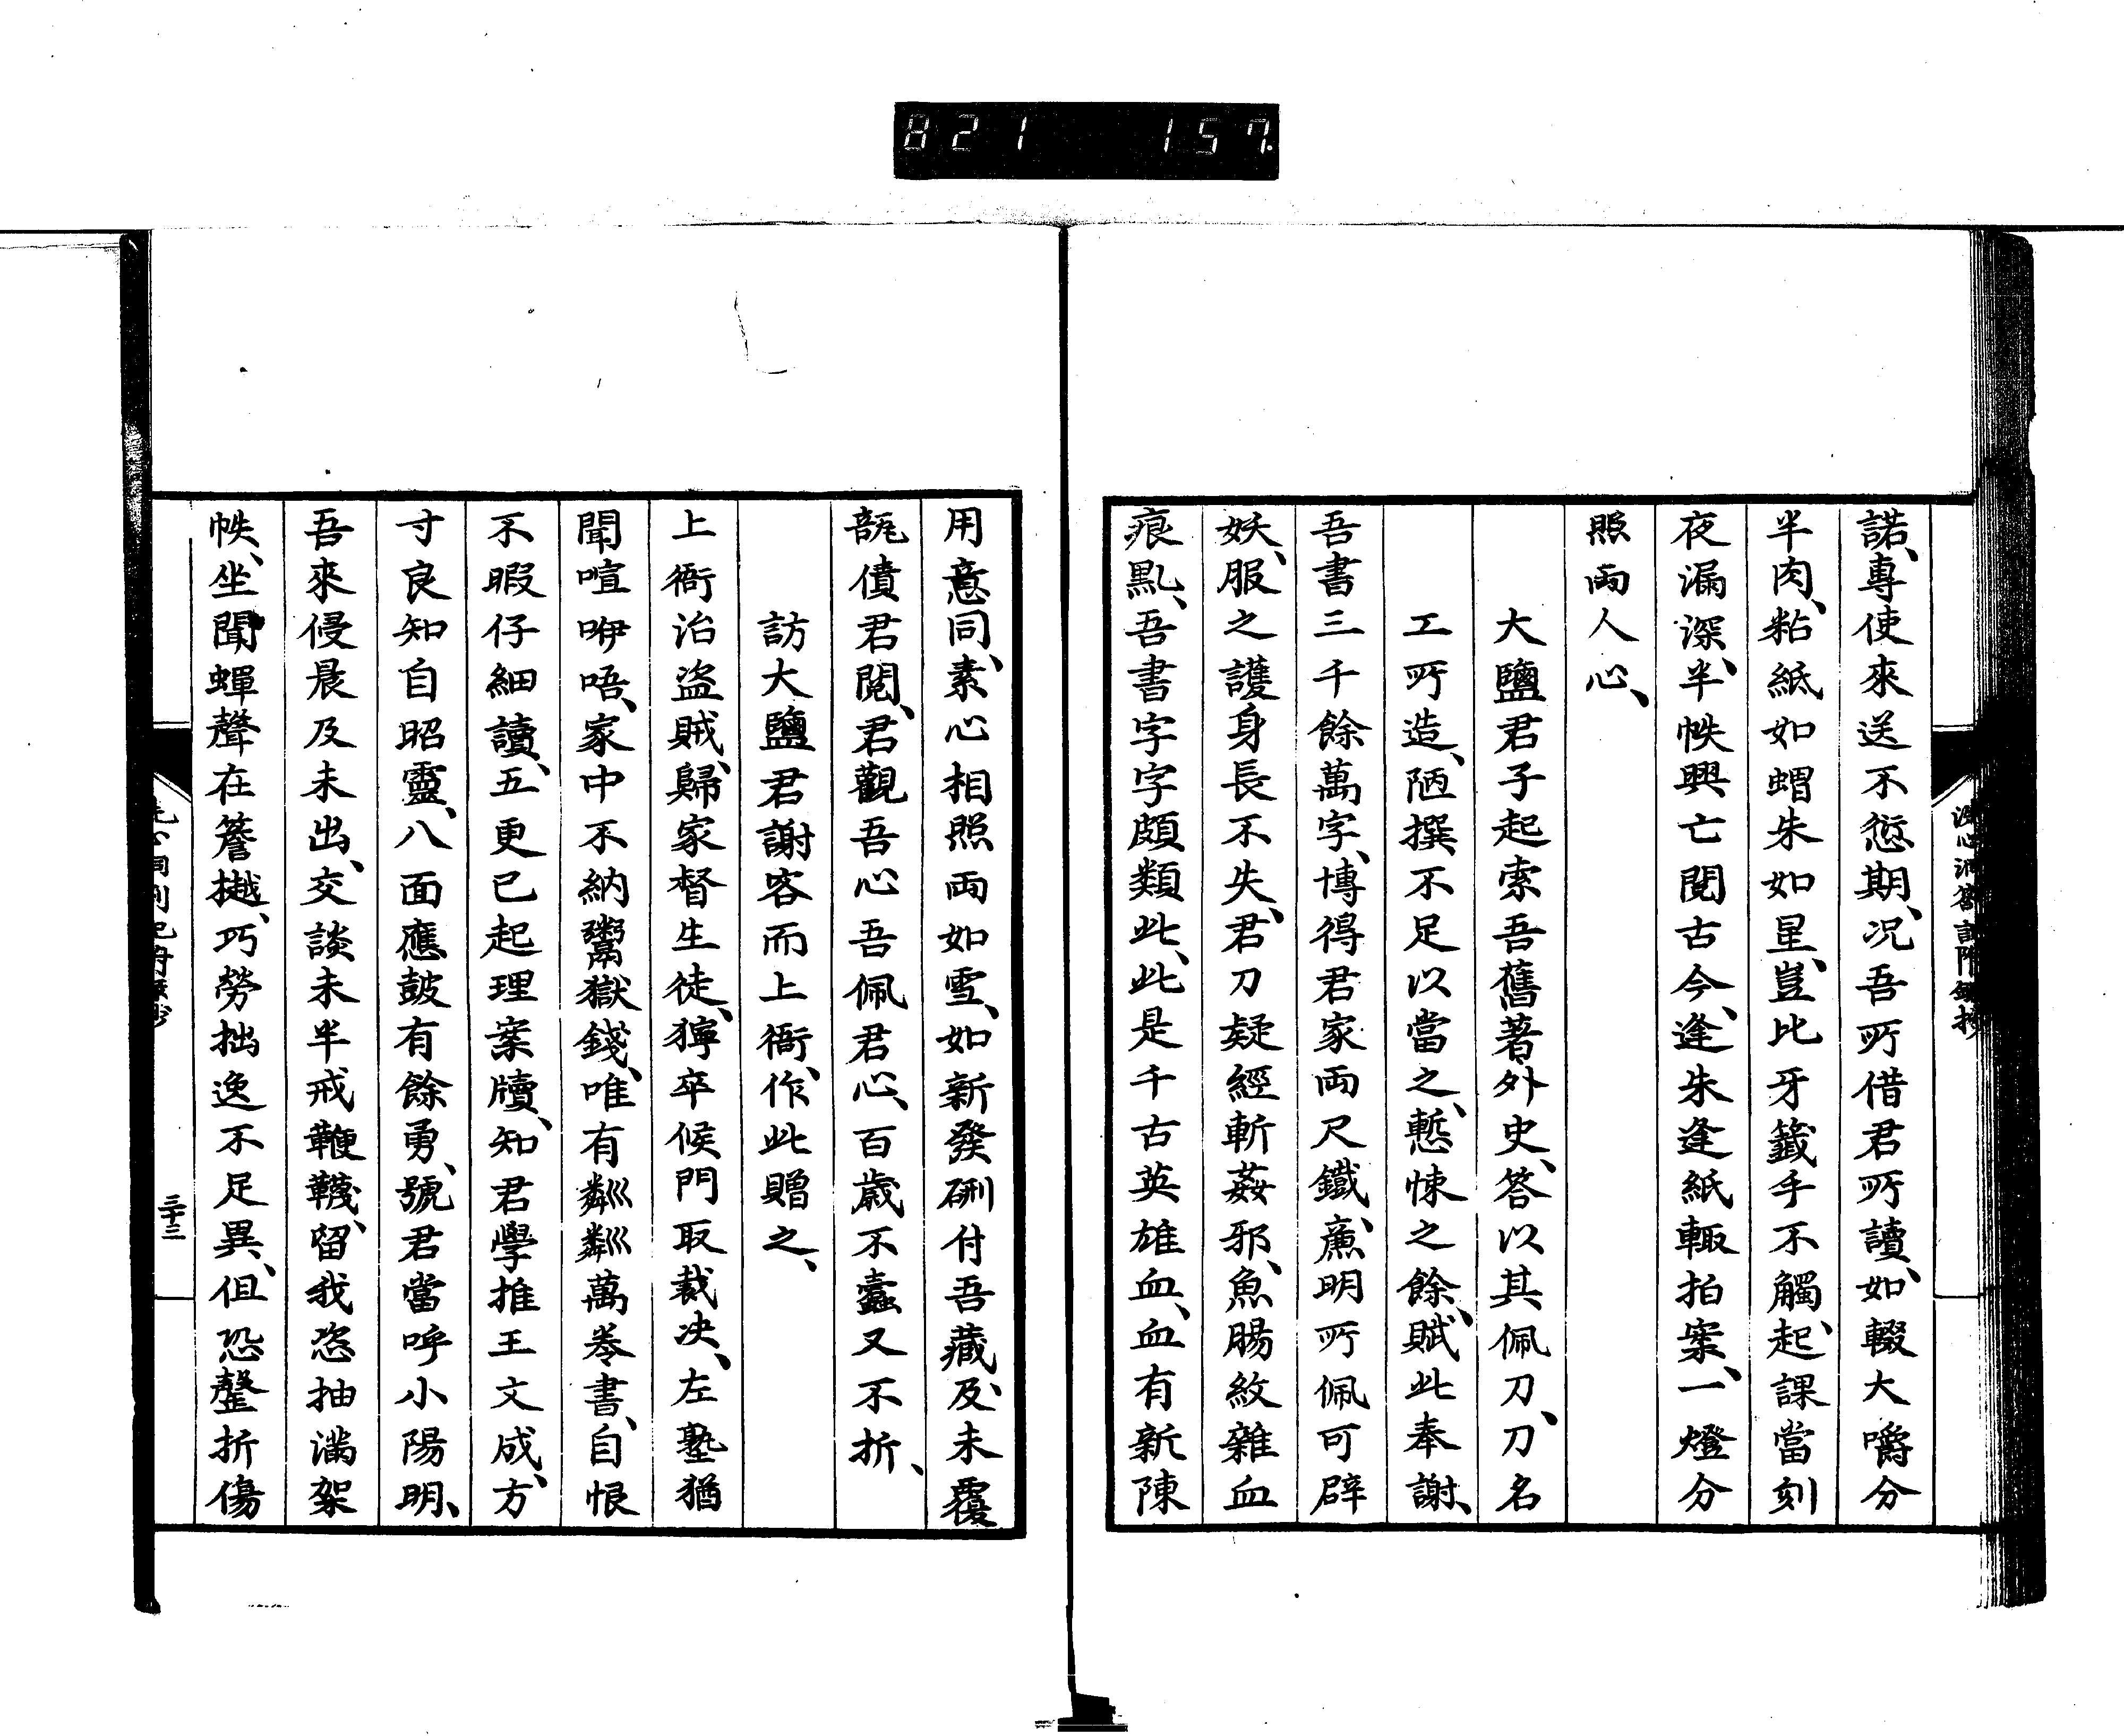 821 157
諾、專使來送不愆期、况吾所借君所讀、如輟大嚼分
半肉、粘紙如蝟朱如星、豈比牙籤手不觸、起課當刻
夜漏深、半帙興亡閱古今、逢朱逢紙輙拍案、一燈分
照兩人心、
大鹽君子起索吾舊著外史、答以其佩刀、刀名
工所造、陋撰不足以當之、慙悚之餘、賦此奉謝、
吾書三千餘萬字、博得君家兩尺鐵、薦明所佩可辟
妖、服之護身長不失、君刀疑經斬姦邪、魚腸紋雜血
痕點、吾書字字頗類此、此是千古英雄血、血有新陳
用意同、素心相照兩如雪、如新發硎付吾藏、及未覆
瓿償君閱、君觀吾心吾佩君心、百歲不蠹又不折、
訪大鹽君謝客而上衙、作此贈之、
上衙治盜賊、歸家督生徒、獰卒候門取裁决、左塾猶
聞喧咿唔、家中不納鬻獄錢、唯有粼粼萬卷書、自恨
不暇仔細讀、五更已起理案牘、知君學推王文成、方
寸良知自昭靈、八面應鼓有餘勇、號君當呼小陽明、
吾來侵晨及未出、交談未半戒鞭韈、留我恣抽滿架
帙、坐聞蟬聲在簷樾、巧勞拙逸不足異、但恐鏧折傷
三十三